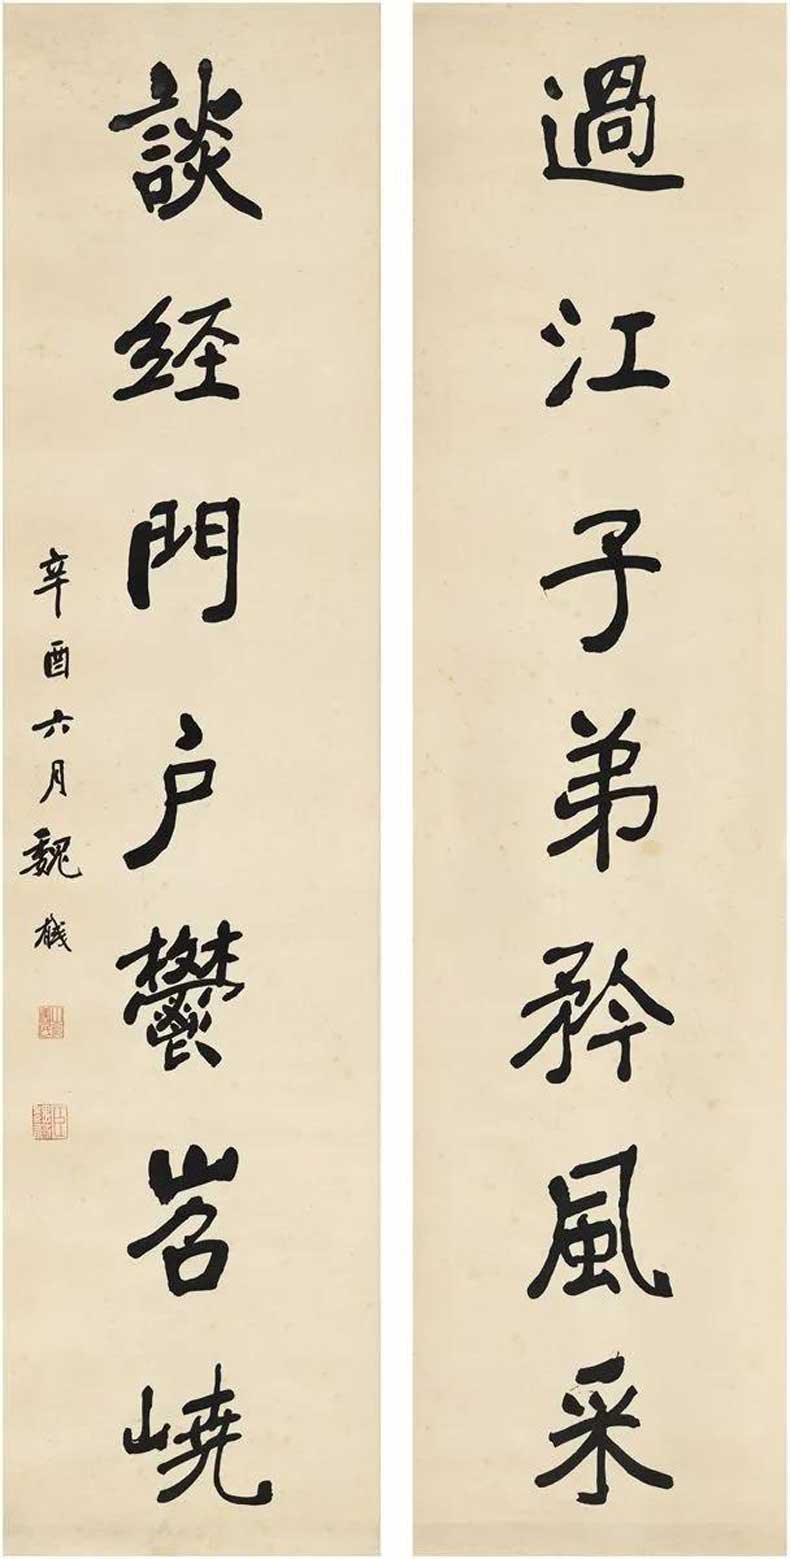 過江子弟矜風采
談経門户鬱岧嶢
辛酉六月魏戫